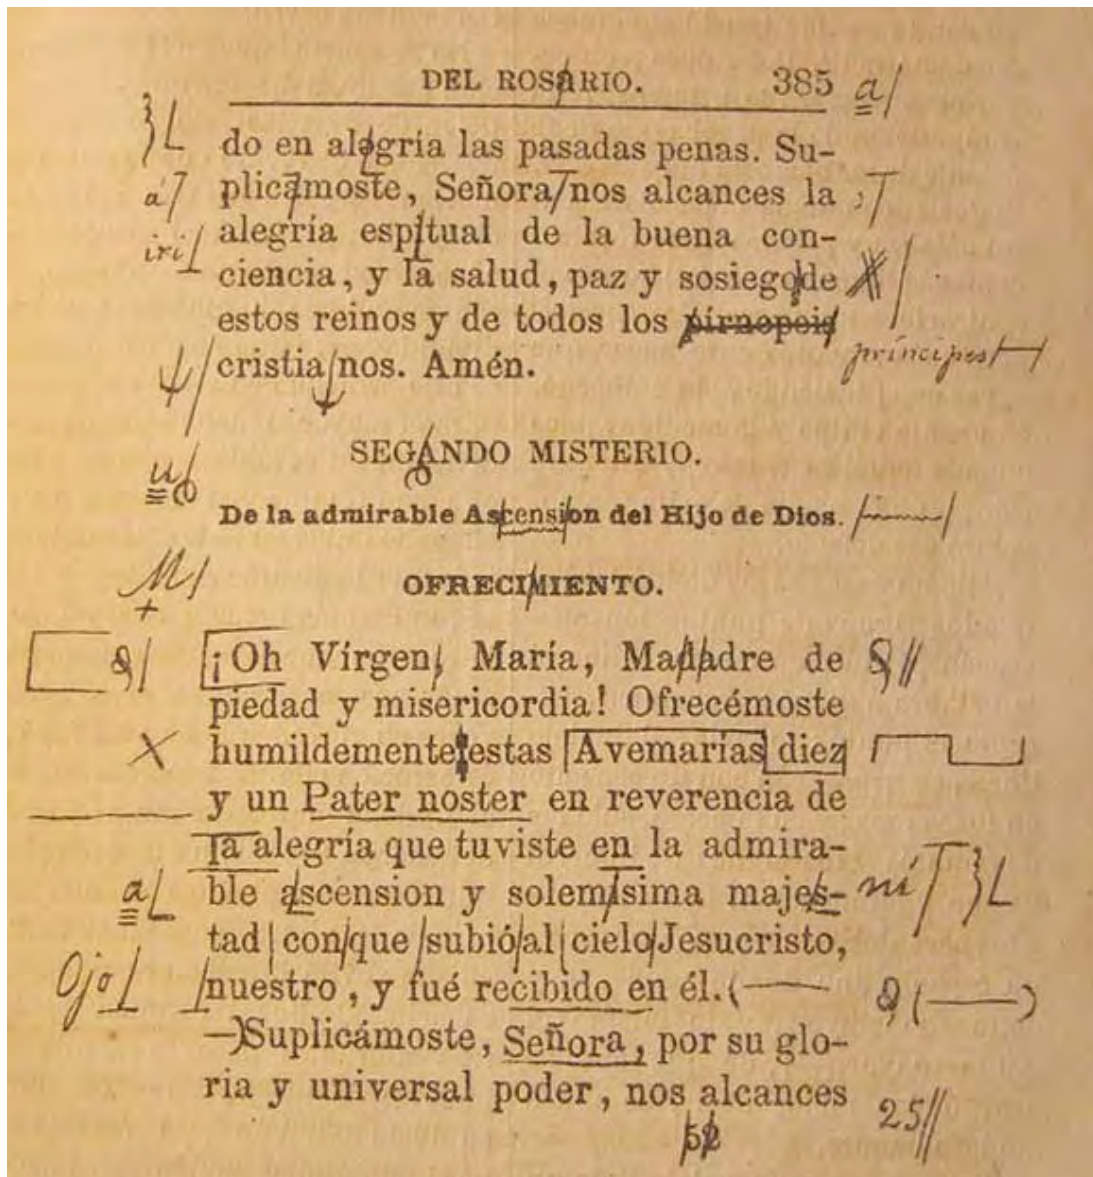 DEL ROSARIO. 385 a
do en alegría las pasadas penas. Su-
á plicamoste, Señora nos alcances la ,
iri alegría espitual de la buena con-
ciencia, y la salud, paz y sosiego de
estos reinos y de todos los pirnopeis príncipes
cristia nos. Amén.
u SEGANDO MISTERIO.
De la admirable Ascension del Hijo de Dios.
M OFRECIMIENTO.
¡Oh Vírgen, María, Madadre de
piedad y misericordia! Ofrecémoste
humildemente estas Avemarías diez
y un Pater noster en reverencia de
la alegría que tuviste en la admira-
a ble ascension y solemísima majes- ní
tad con que subió al cielo Jesucristo,
Ojo nuestro, y fué recibido en él. (—
—) Suplicámoste, Señora, por su glo-
ria y universal poder, nos alcances
52 25